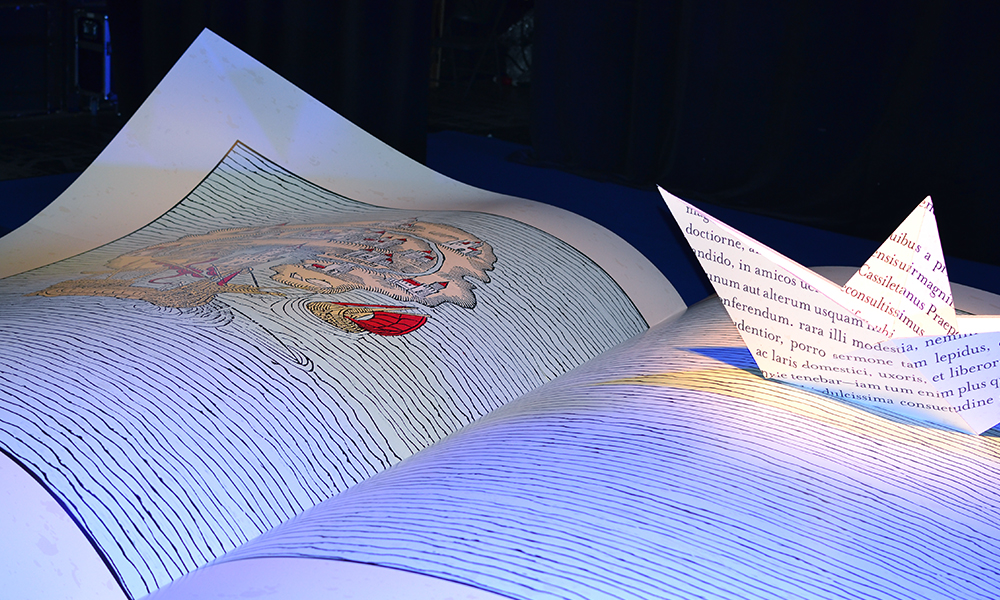 mag
doctiorne, a
ndido, in amicos
unum aut alterum usquam
nferendum. rara illi modestia, nem
dentior, porro sermone tam lepidus,
ac laris domestici, uxoris, et liberor
tenebar—iam tum enim plus q
dulcissima consuetudine
en
uibus a p
nsisuirmagni
Cassiletanus Praep
consultissimus